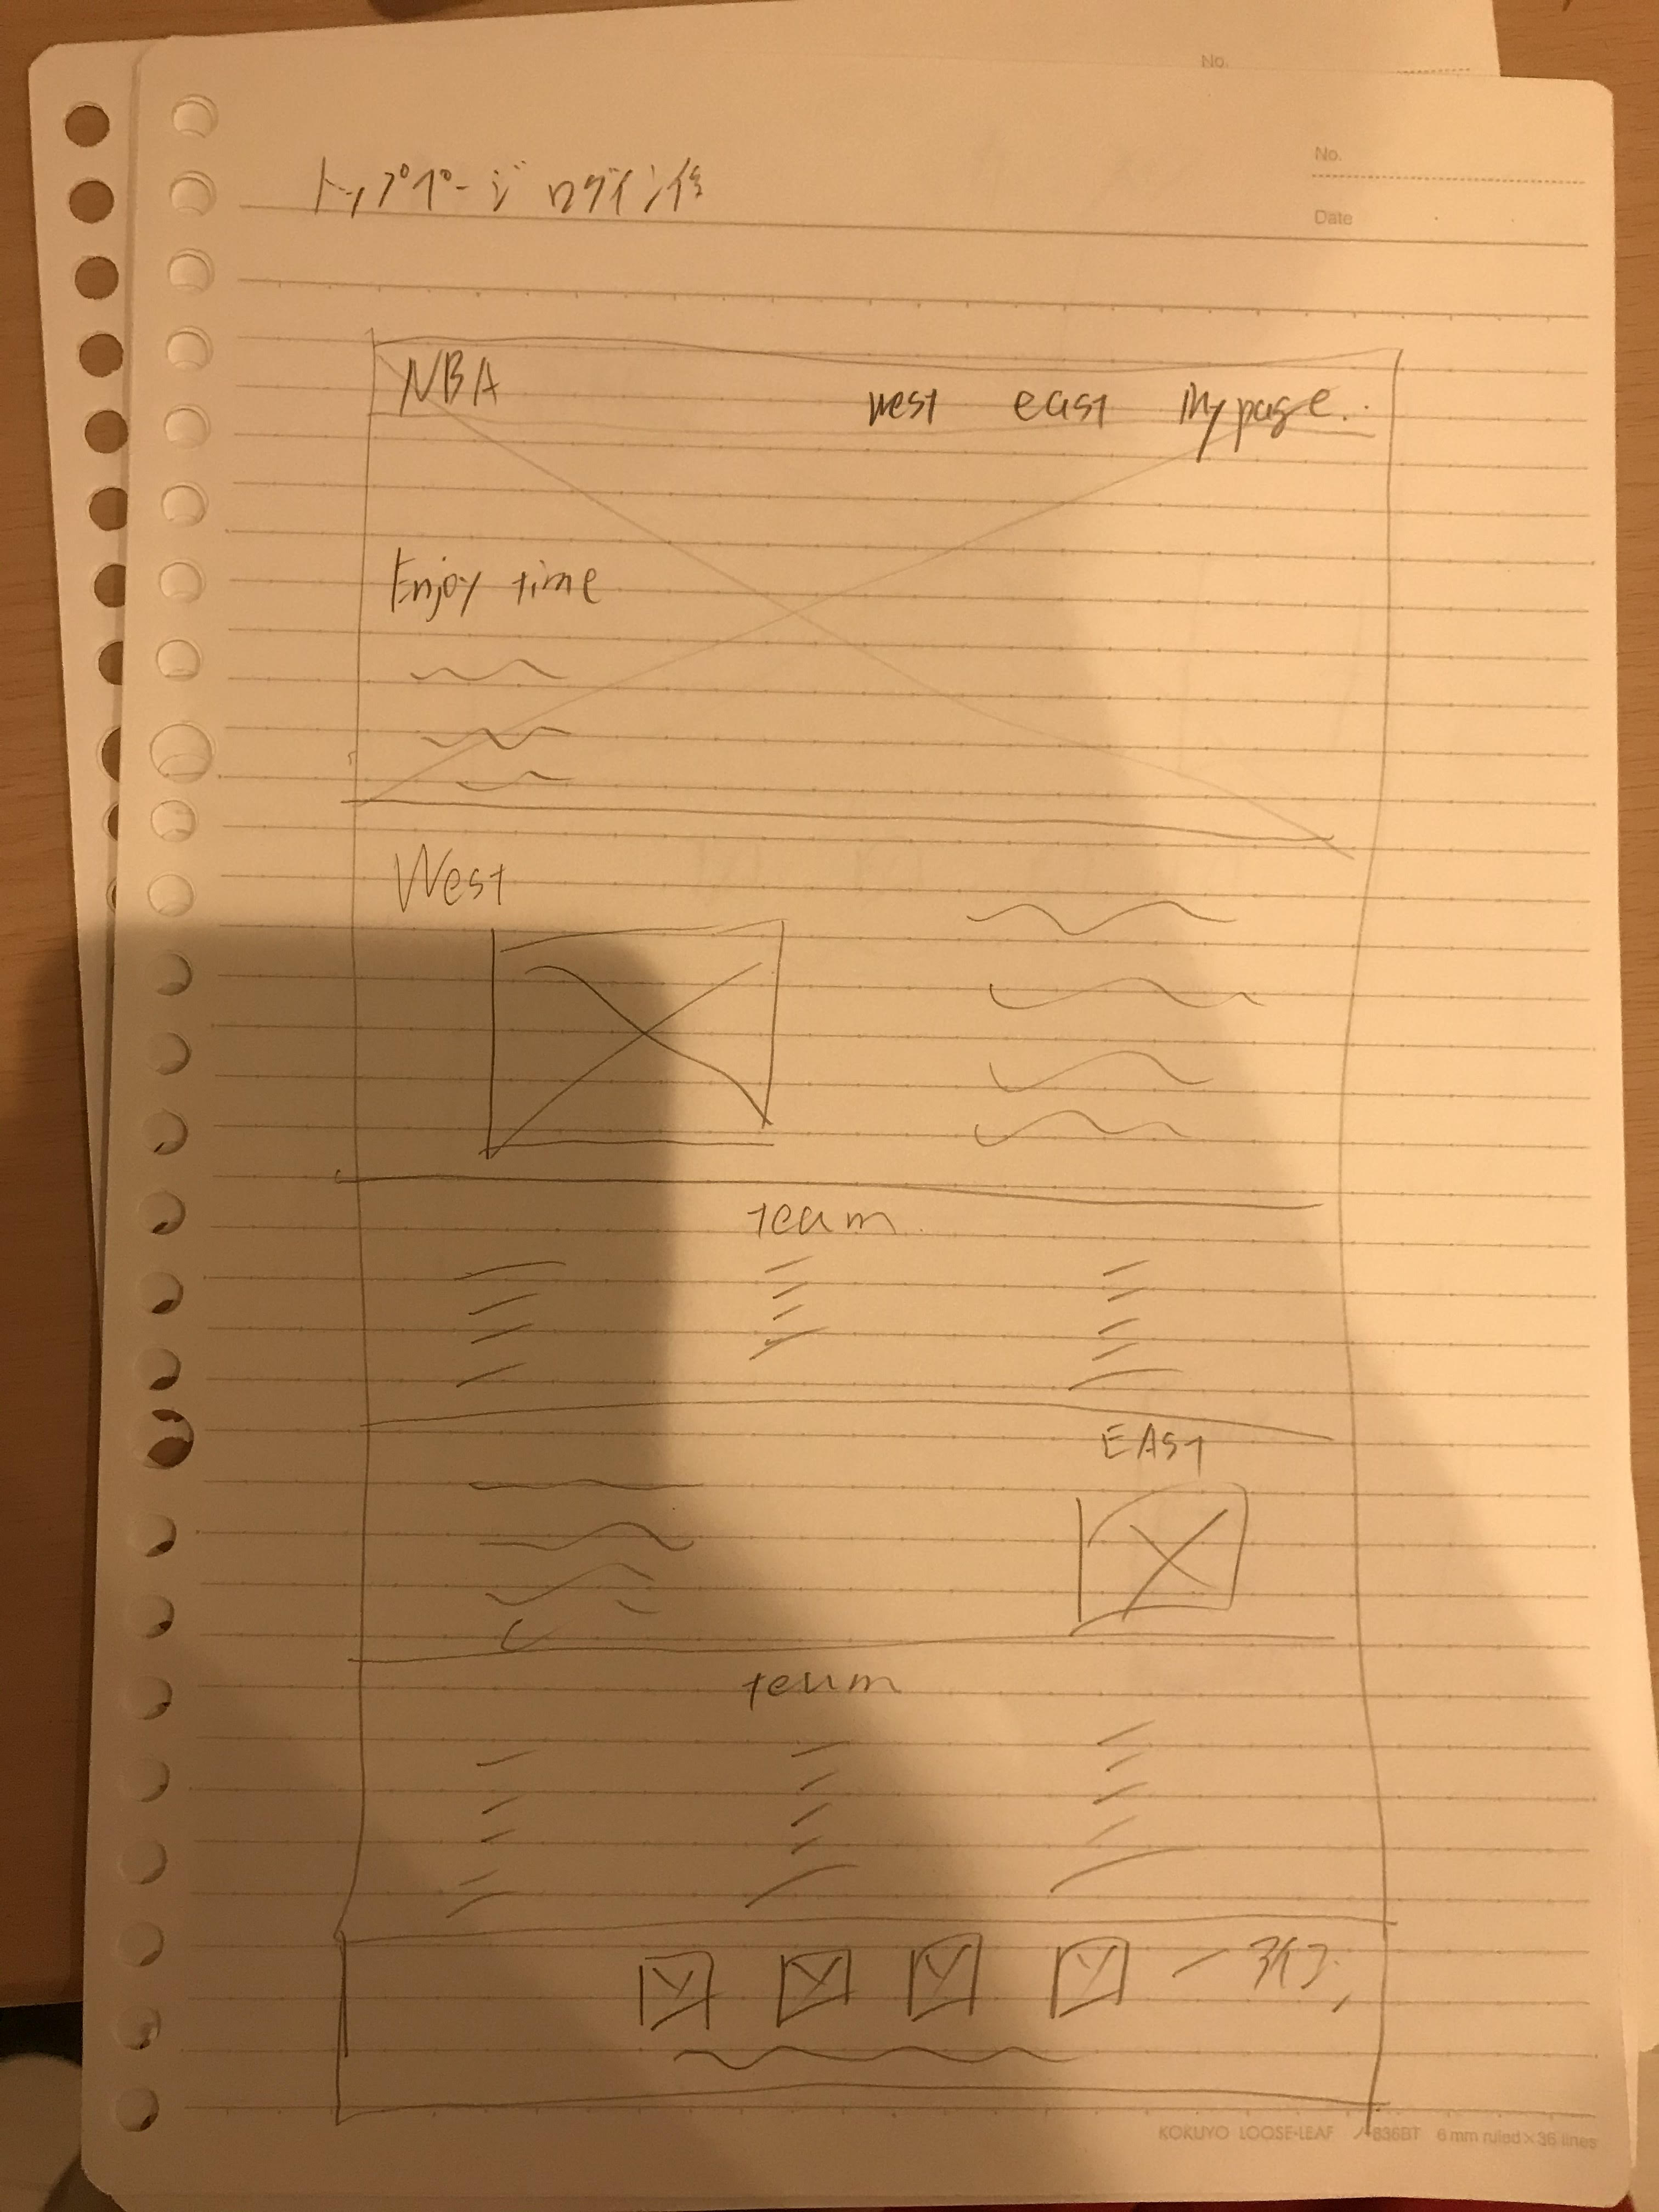 No.
No.
Date
トップページ ログイン後
NBA west east mypage..
Enjoy time
West
team.
EAST
team
KOKUYO LOOSE-LEAF ノ-836BT 6 mm ruled×36 lines